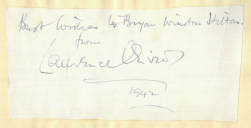 Best Wishes to Bryan Winston
from
Laurence Olivier
1942